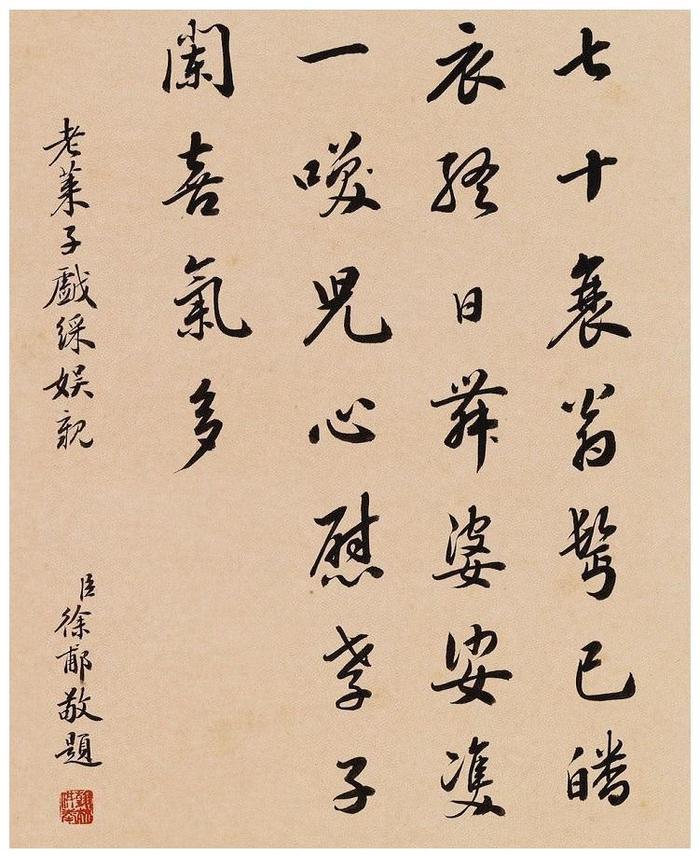 七十衰翁髩已皤
衣終日舞婆娑雙
一咲兒心慰孝子
闌喜氣多
老萊子戲綵娛親
臣徐郙敬題